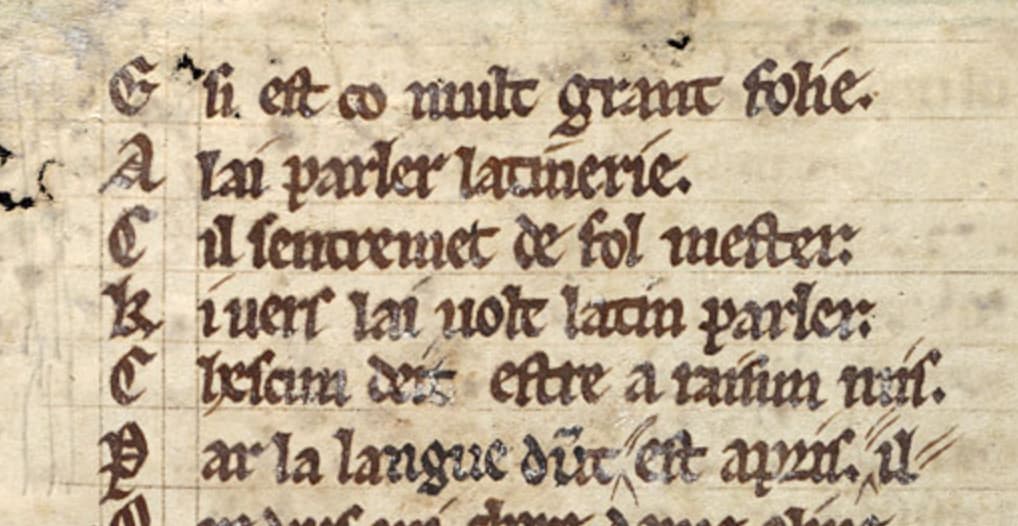 E si est co mult grant folie.
A lai parler latinerie.
C il sentremet de fol mester.
K i uers lai uolt latin parler.
C hescun deit estre a raisun mis.
P ar la langue dũt est apris. il